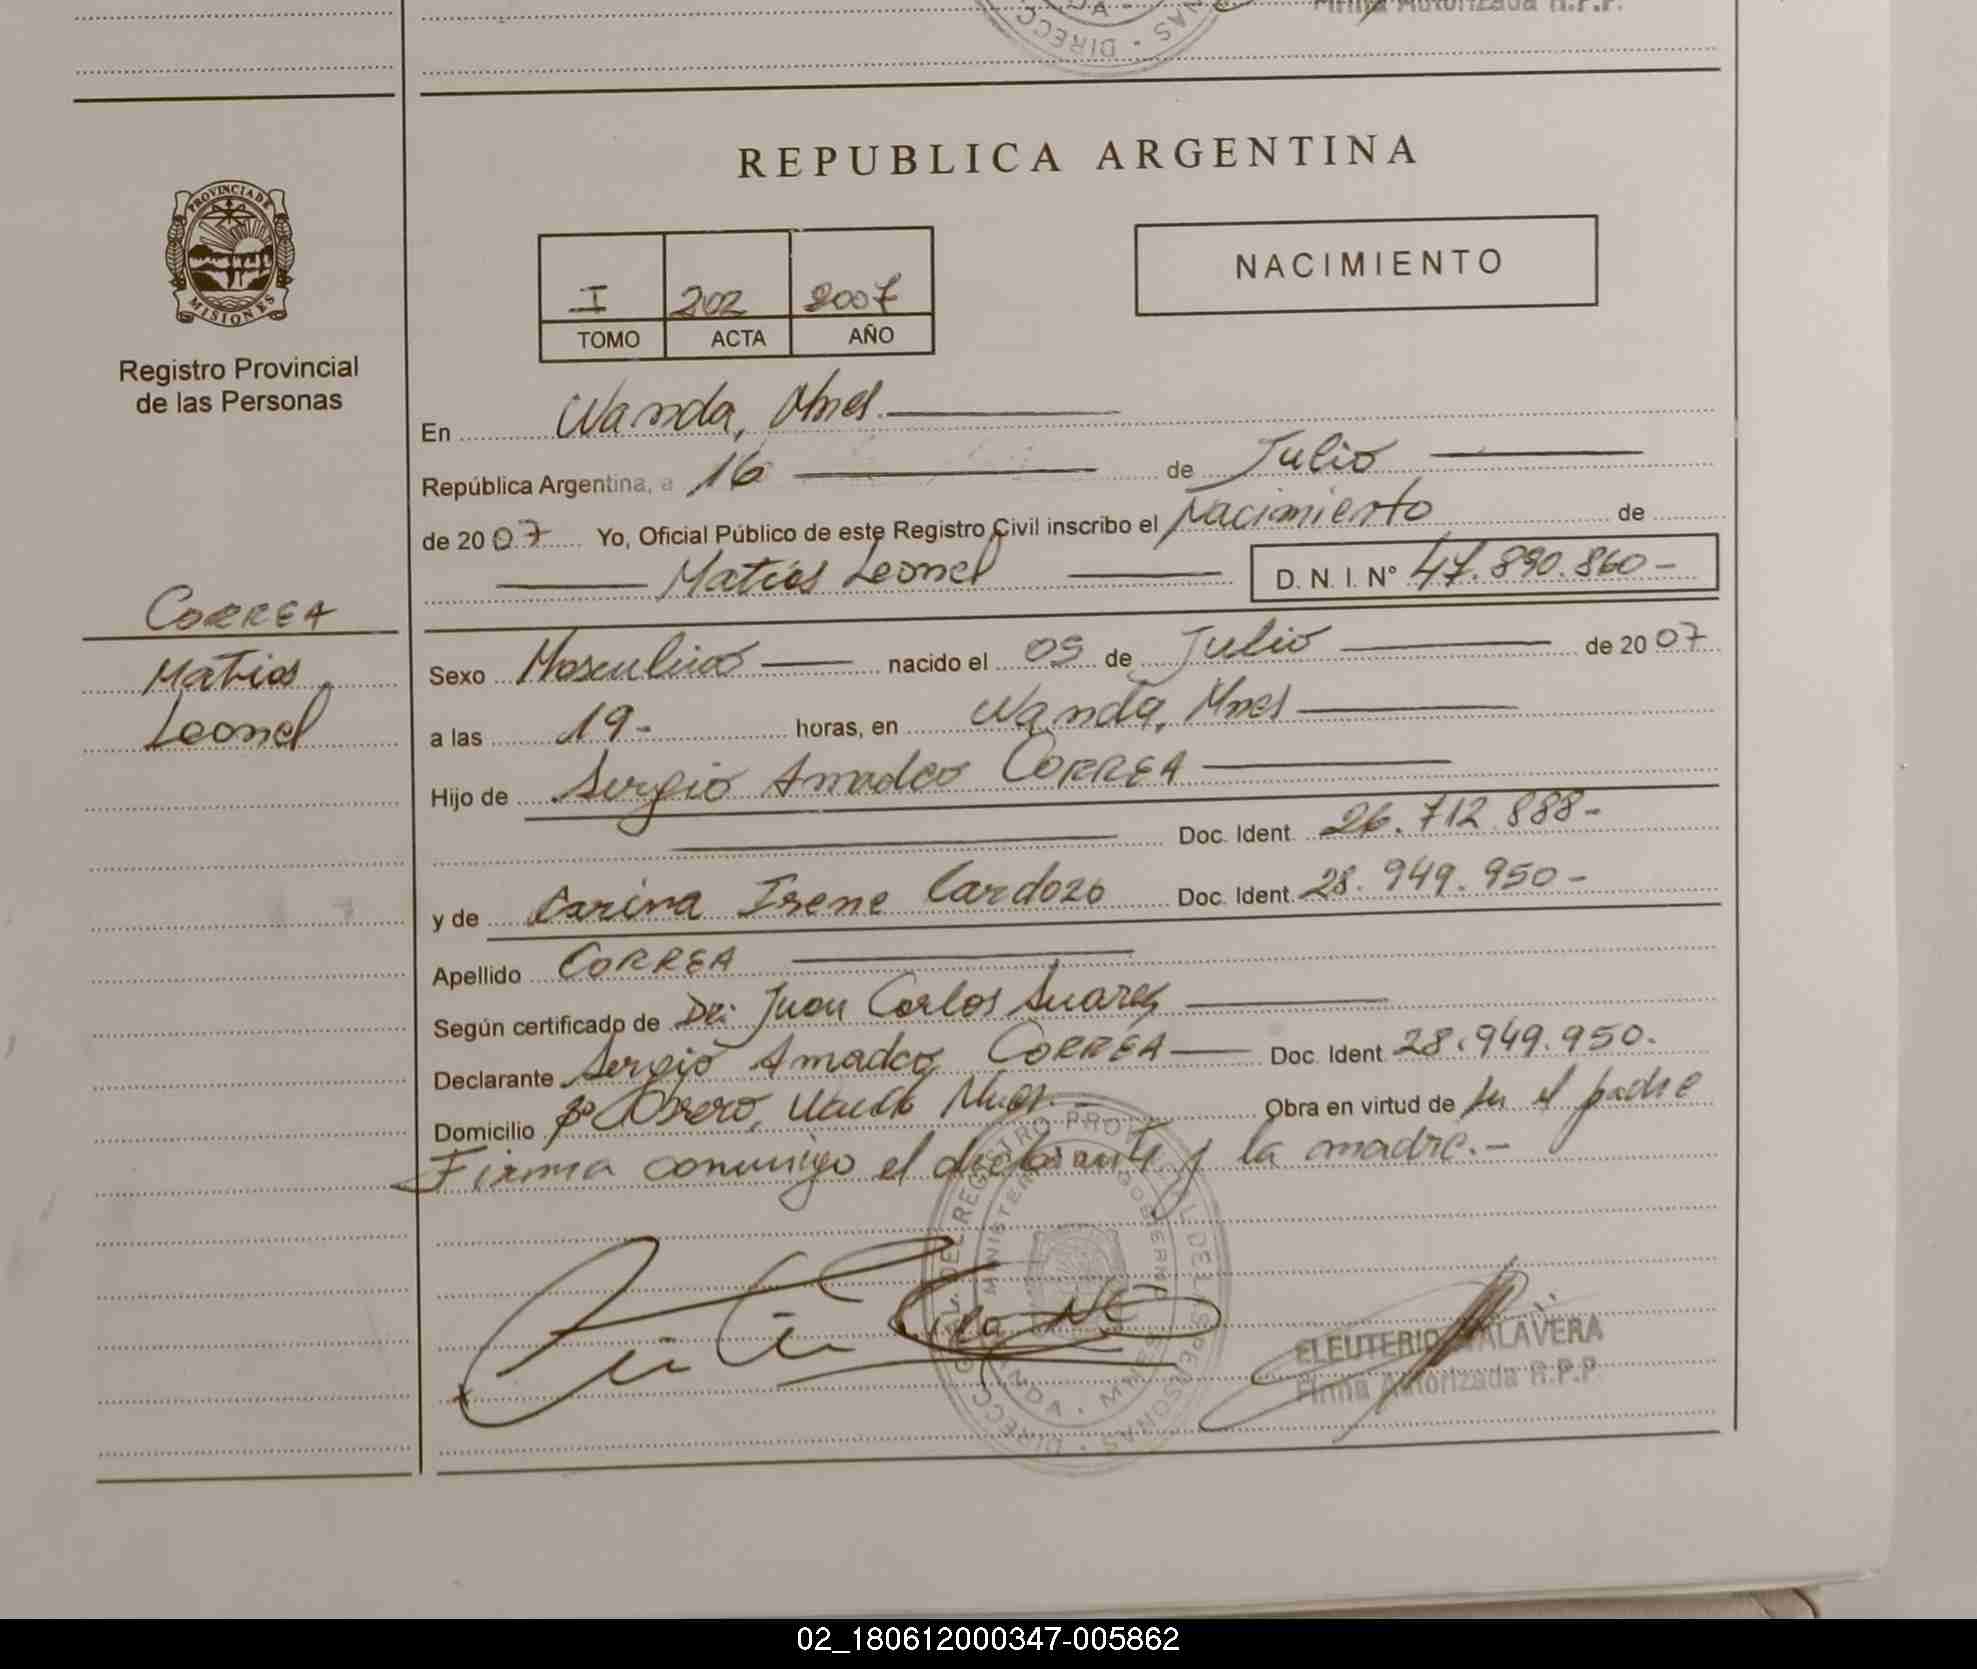 Firma Autorizada R.P.P.
REPUBLICA ARGENTINA
PROVINCIA DE MISIONES
Registro Provincial
de las Personas
NACIMIENTO
I 202 2007
TOMO ACTA AÑO
En Wanda, Mnes.
República Argentina, a 16 de Julio
de 2007 Yo, Oficial Público de este Registro Civil inscribo el Nacimiento de
Matias Leonel D. N. I. N° 47.890.860-
CORREA
Matias
Leonel
Sexo Masculino nacido el 05 de Julio de 2007
a las 19- horas, en Wanda, Mnes
Hijo de Sergio Amadeo CORREA
Doc. Ident. 26.712.888-
y de Carina Irene Cardozo Doc. Ident. 28.949.950-
Apellido CORREA
Según certificado de Dr: Juan Carlos Suarez
Declarante Sergio Amadeo CORREA Doc. Ident 28.949.950.
Domicilio Bº Obrero, Wanda Mnes.- Obra en virtud de ser el padre
Firma conmigo el declarante y la madre.-
ELEUTERIO TALAVERA
Firma Autorizada R.P.P.
02_180612000347-005862